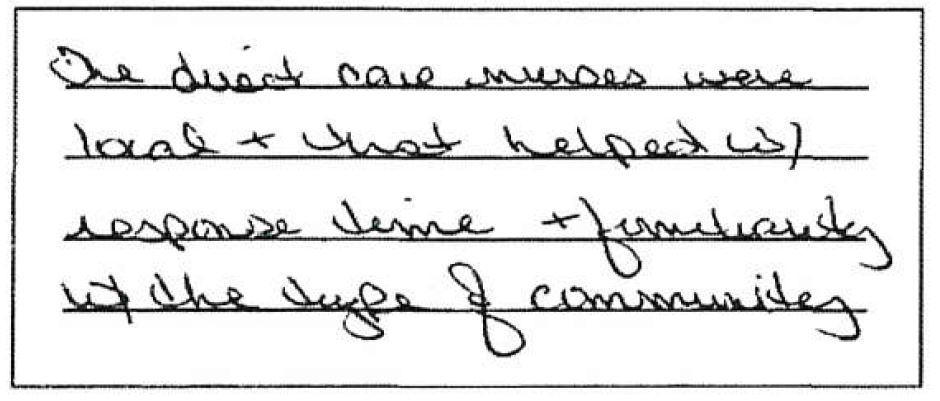 The direct care nurses were
local + that helped w/
response time + familiarity
w/ the type of community